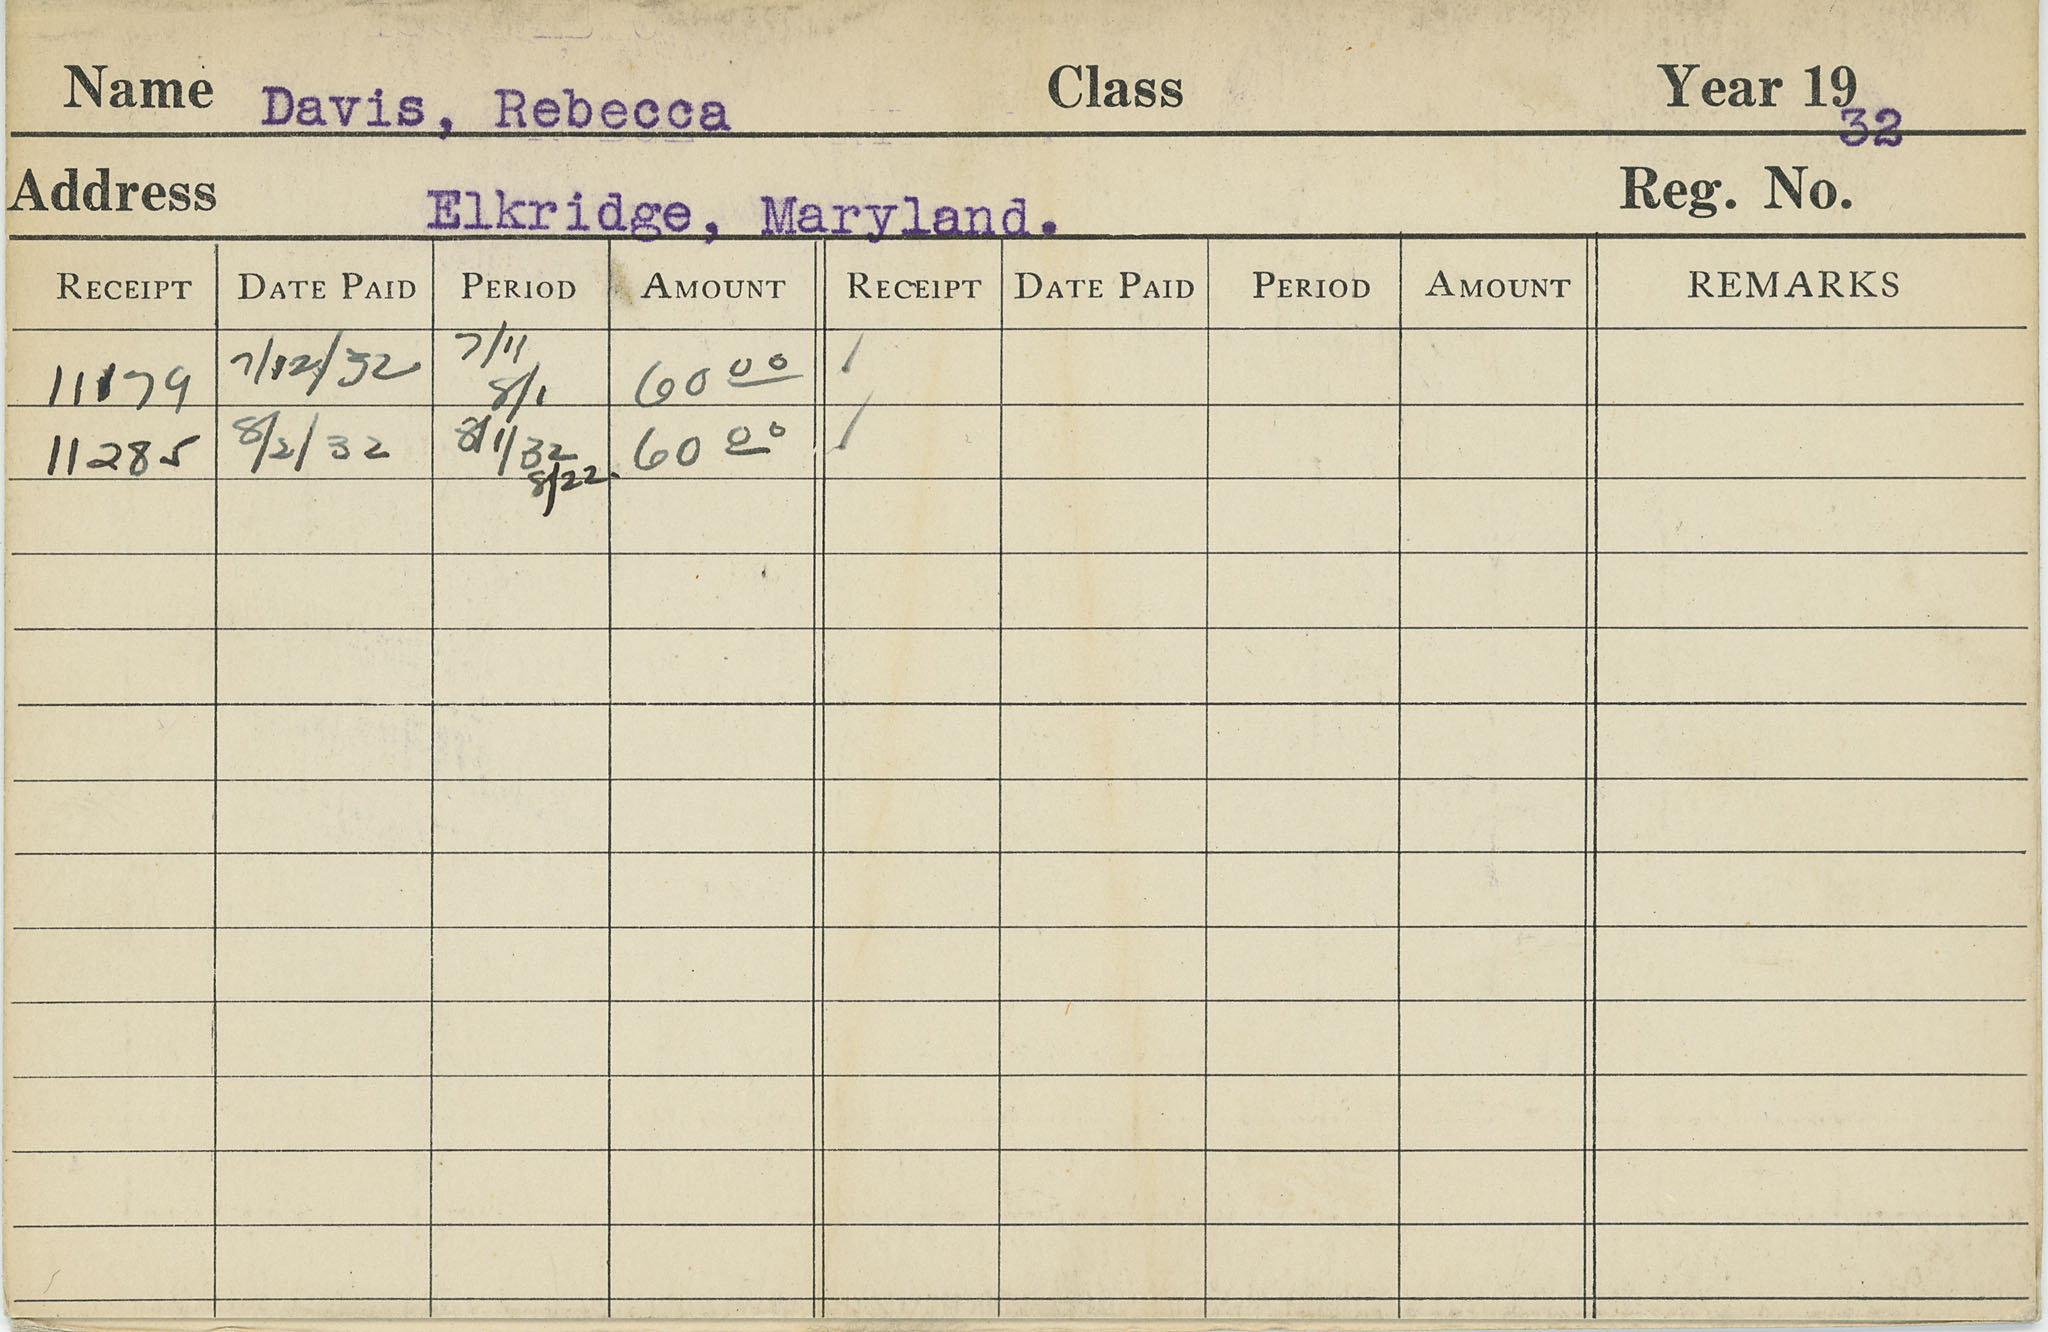 Name Davis, Rebecca Class Year 1932
Address Elkridge, Maryland. Reg. No.
RECEIPT DATE PAID PERIOD AMOUNT RECEIPT DATE PAID PERIOD AMOUNT REMARKS
11179 7/12/32 7/11 8/1 60 00 ✓
11285 8/2/32 8/1/32 8/22. 60 00 ✓